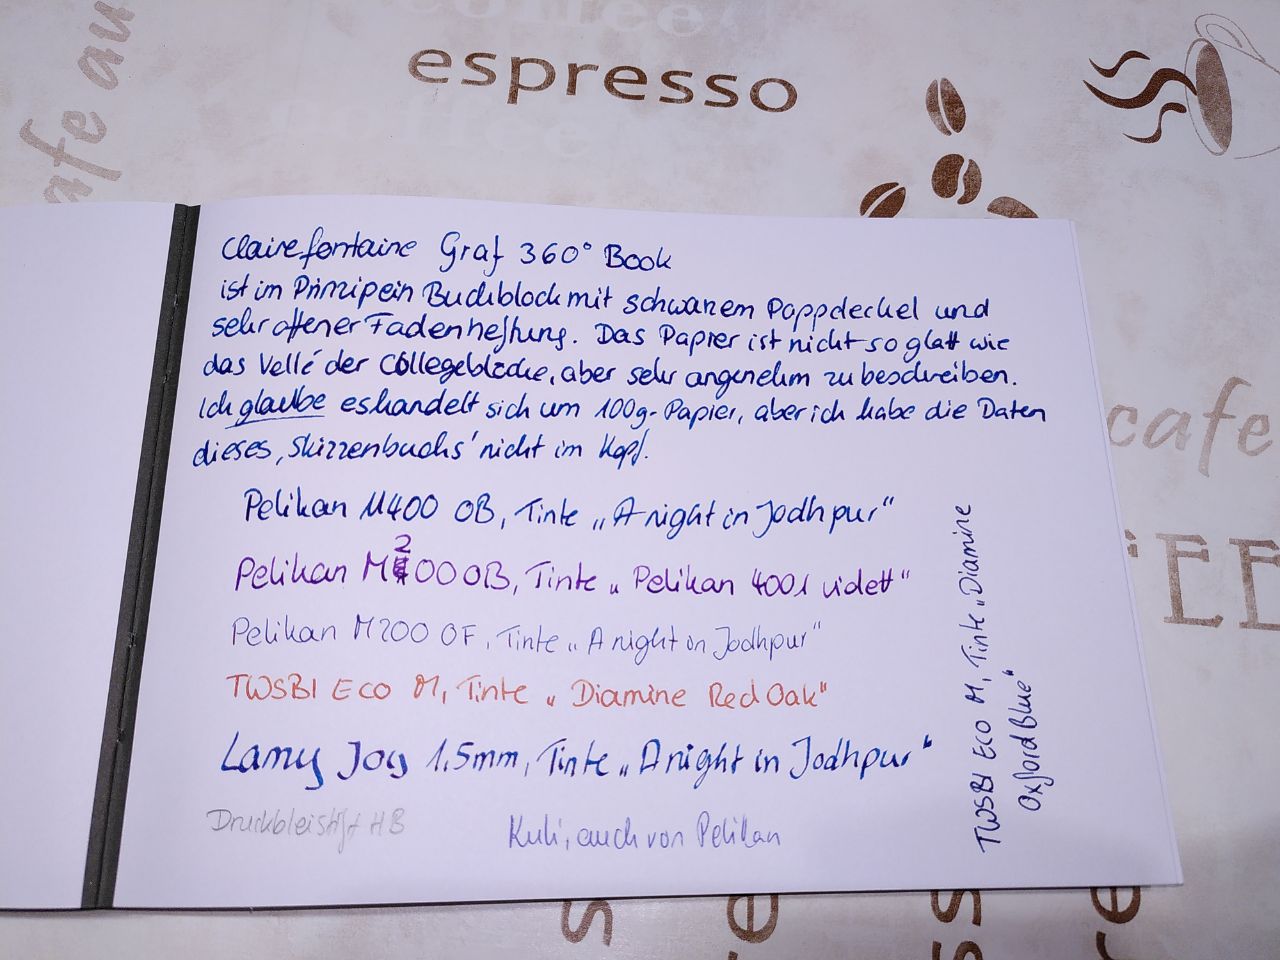 coffee
espresso
coffee
cafe au
Clairefontaine Graf 360° Book
ist im Prinzip ein Buchblock mit schwarzem Pappdeckel und
sehr offener Fadenheftung. Das Papier ist nicht so glatt wie
das Vellé der Collegeblöcke, aber sehr angenehm zu beschreiben.
Ich glaube es handelt sich um 100g-Papier, aber ich habe die Daten
dieses ‚Skizzenbuchs' nicht im Kopf.
Pelikan M400 OB, Tinte „A night in Jodhpur"
Pelikan M200 OB, Tinte „Pelikan 4001 violett"
Pelikan M200 OF, Tinte „A night in Jodhpur"
TWSBI Eco M, Tinte „Diamine Red Oak"
Lamy Joy 1.5mm, Tinte „A night in Jodhpur"
Druckbleistift HB
Kuli, auch von Pelikan
TWSBI Eco M, Tinte „Diamine
Oxford Blue"
cafe